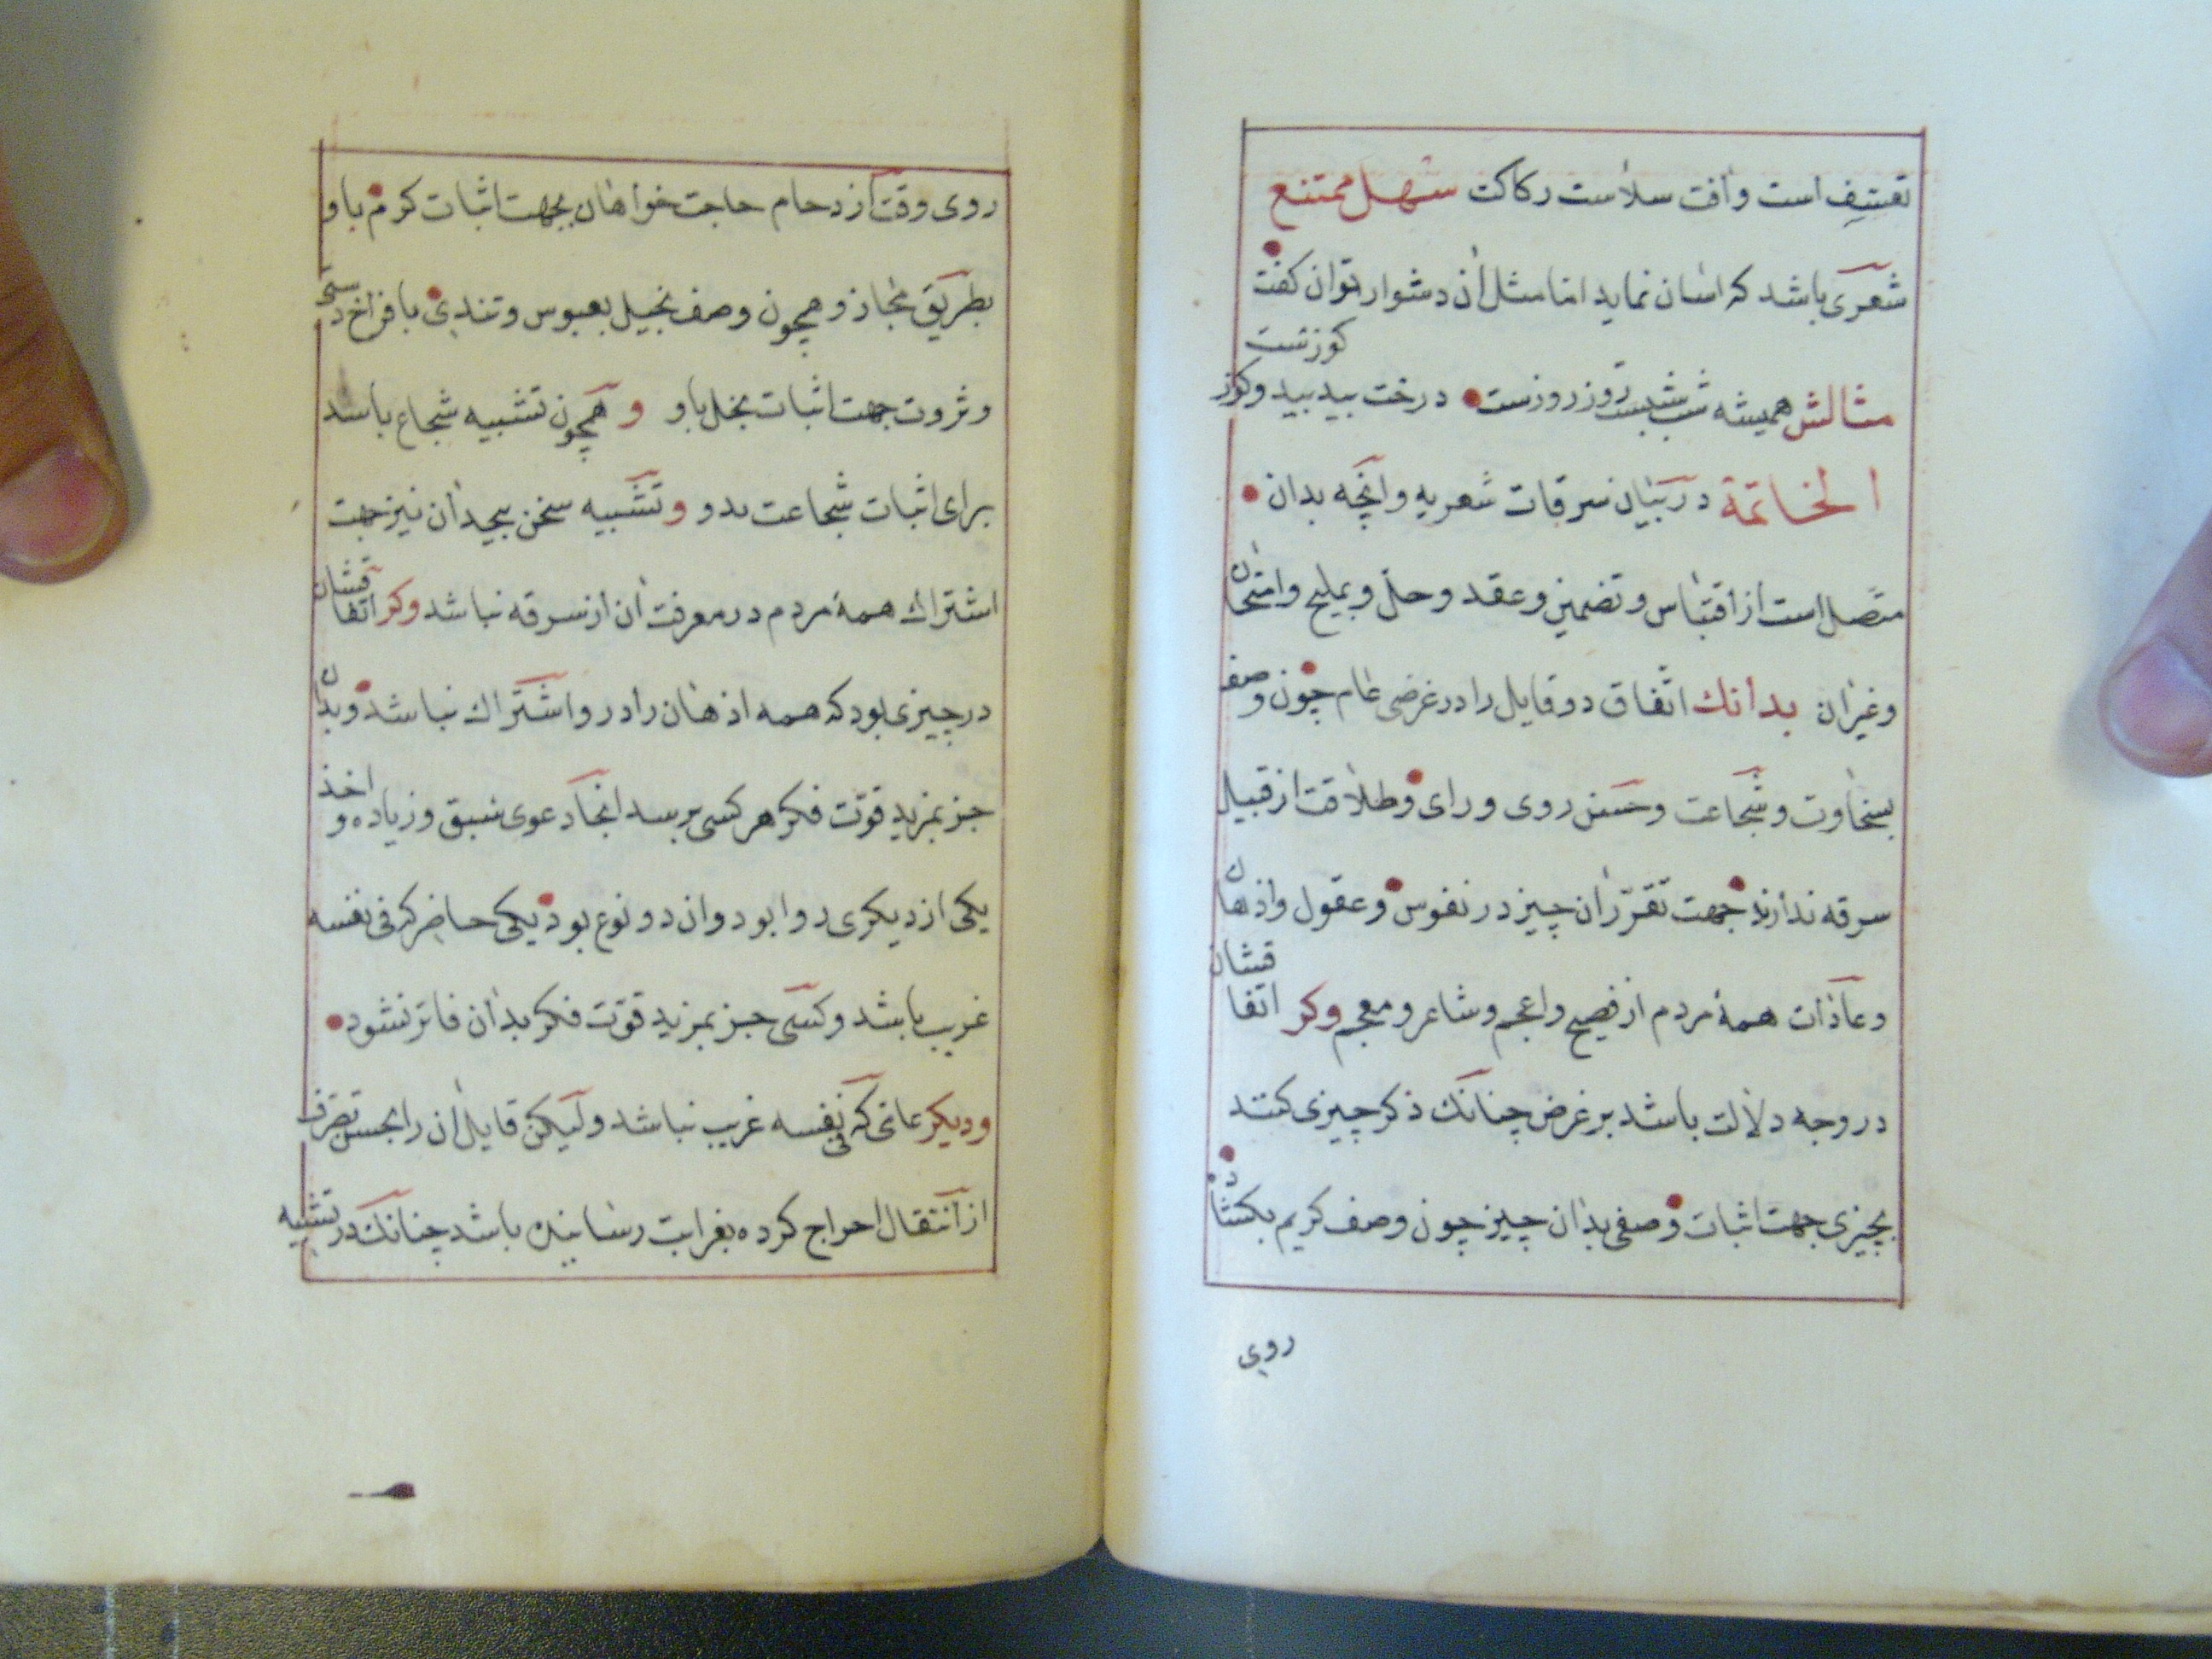 تعسف است وآفت سلاست ركاكت سهل ممتنع
شعرى باشد كه اسان نمايد اما مثل آن دشوار توان كفت
كوزست
مثالش هميشه شب شبست روز روزست درخت بيد بيد وكوز
الخاتمة در بيان سرقات شعريه وانچه بدان
متصل است از اقتباس وتضمين وعقد وحل وتمليح وامتحان
وغيران بدانك اتفاق دو قايل را در غرضى عام چون وصف
بسخاوت وشجاعت وحسن روى وراى وطلاقت از قبيل
سرقه ندارند جهت تقرر آن چيز در نفوس وعقول واذهان
وعادات همۀ مردم از فصيح واعجم وشاعر ومعجم وكر اتفاقشان
در وجه دلالت باشد بر غرض چنانك ذكر چيزى كنند
بچيزى جهت اثبات وصفى بدان چيز چون وصف كريم بكشاد
روى
روى وقت ازدحام حاجت خواهان بجهت اثبات كرم باو
بطريق مجاز وهمچون وصف بخيل بعبوس وتندى با فراخ دستى
وثروت جهت اثبات بخل باو و همچون تشبيه شجاع باسد
براى اثبات شجاعت بدو وتشبيه سخن بيجدان نيز جهت
اشتراك همۀ مردم در معرفت آن از سرقه نباشد وكر اتفاقشان
در چيزى بود كه همه اذهان را در و اشتراك نباشد وبدان
جز بمزيد قوت فكر هر كسى نرسد انجا دعوى سبق وزياده و اخذ
يكى از ديكرى روا بود وان دو نوع بود يكى حاضر كه فى نفسه
غريب باشد وكسى جز بمزيد قوت فكر بدان فائز نشود
وديكر عامى كه فى نفسه غريب نباشد وليكن قايل آن را بحسن تصرف
از انتقال اخراج كرده بغرابت رسانيده باشد چنانك در تشبيه